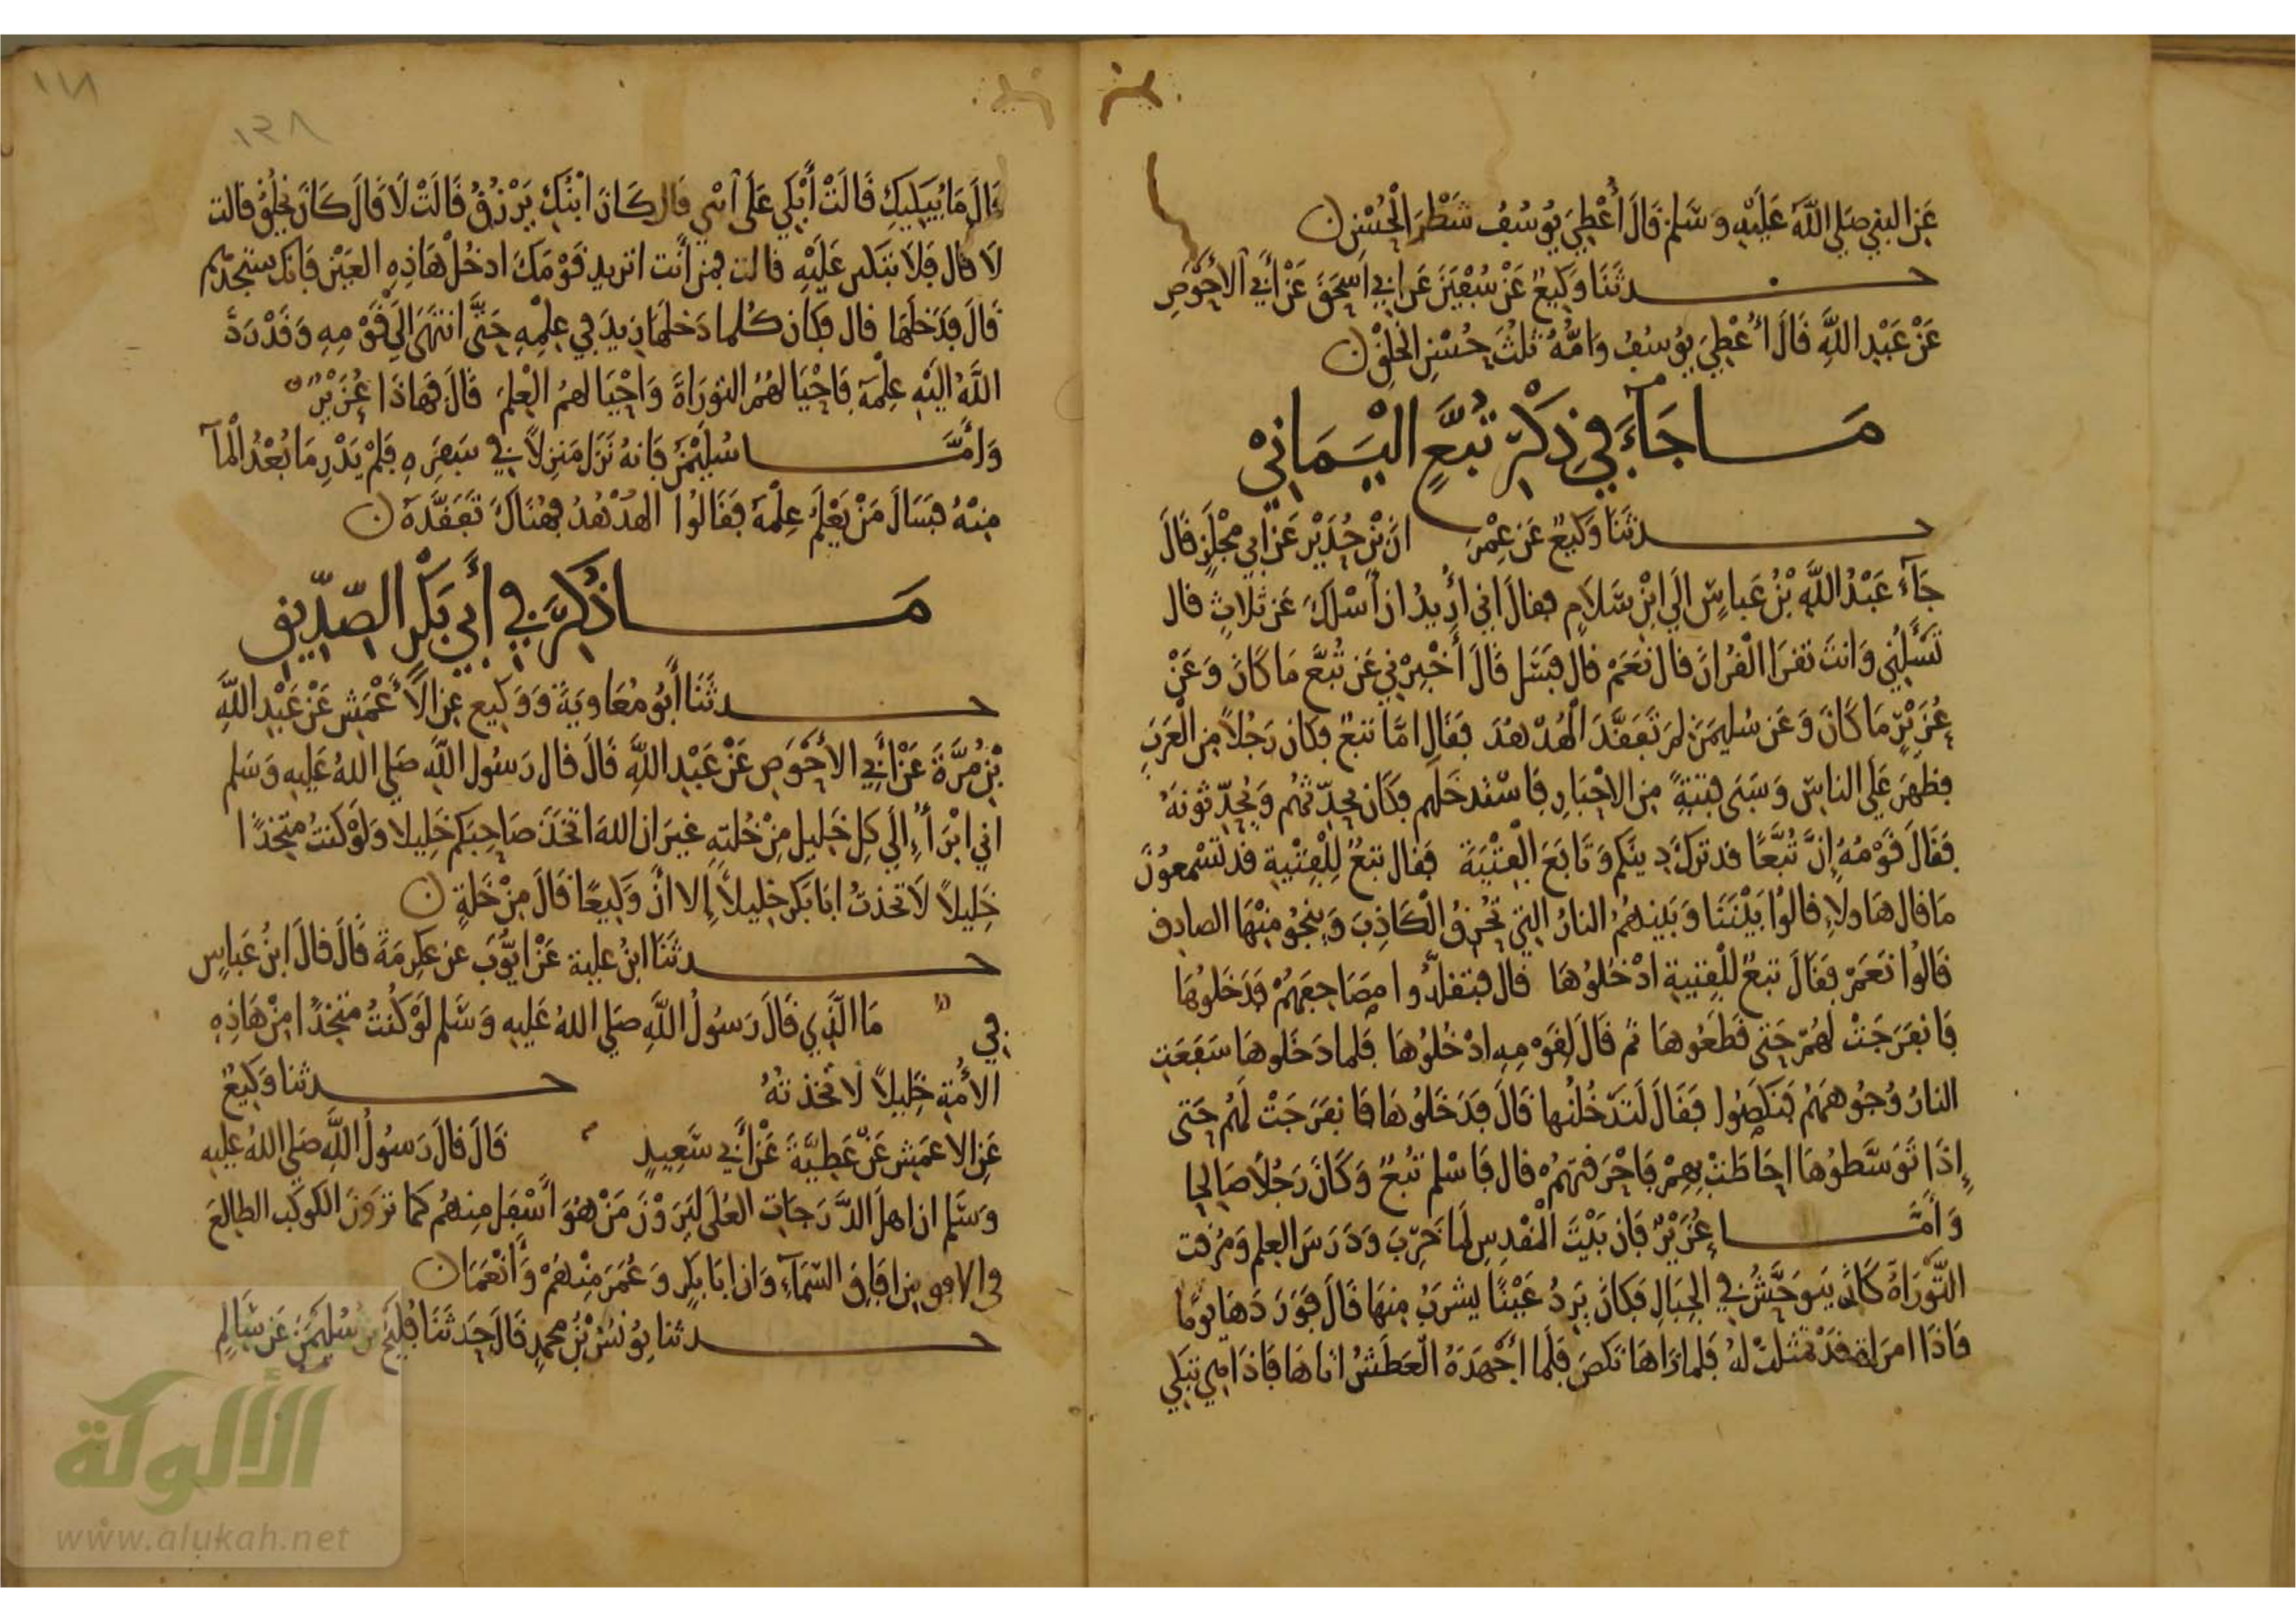 عَنِ النبي صَلى اللَّه عَلَيْهِ وَسَّلم قَالَ أُعْطِيَ يُوسُفُ شَطْرَ الْحُسْنِ ن
حدثَنَا وَكِيعٌ عَنْ سُفْيَنَ عَن ابي اسْحَقَ عَنْ أَبي الأَحْوَصِ
عَنْ عَبْدِ اللَّهِ قَالَ أُعْطِيَ يُوسُفُ وَامُّهُ ثلثَ حُسْنِ الخَلْقِ ن
مَا جَآءَ فِي ذِكْرِ تُبَّعٍ الْيَمَانِيْ
حدثَنَا وَكِيعٌ عَن عِمْرَانَ بْنِ حُدَيْرٍ عَنْ ابي مِجْلَزٍ قَالَ
جَآءَ عَبْدُ اللَّهِ بْنُ عَباسٍ الَى ابْنِ سَلَامٍ فقالَ اني أُرِيدُ ان أَسْلَكَ عَن ثَلاثٍ قال
تَسَّلُنِي وَانتَ تقرَا الْقُرانَ قال نَعَمْ قال فَسَل قَالَ أَخْبِرْنِي عَن تُبَّعٍ مَا كَانَ وَعَنْ
عُزَيْرٍ مَا كَانَ وَعَن سُليمَنَ لِمَ تَفَقَّدَ الْهُدْهُدَ فقَالَ امَّا تبعٌ فكان رَجُلاً مِنَ الْعَرَبِ
فظَهَرَ عَلَى الناسِ وَسَبَى فِتيةً مِنَ الاحْبَارِ فَاسْتَدخَلَهم فكَانَ يحِدّثهُم وَيُحِدّثونهُ
فقَالَ قَوْمُهُ إِنَّ تُبَّعًا قد تركَ دِينَكم وَتَابَعَ الْفِتْيَةَ فقال تبعٌ لِلْفِتْيَةِ قد تَسْمعونَ
مَا قال هَاولاءِ قالوُا بَيْنَنَا وَبَينهمُ النارُ التي تُحْرِقُ الْكَاذِبَ وَينجُو مِنْهَا الصادِق
قَالُوا نَعَمْ فقَالَ تبعٌ للْفِتيةِ ادْخُلُوهَا قال فتقلّدُوا مصَاحِفَهُمْ فَدَخَلُوهَا
فَانْفَرَجَتْ لهُمْ حَتى قَطَعُوهَا ثم قَالَ لقَوْمِهِ ادْخُلوُهَا فلما دَخَلوهَا سَفَعَتِ
النارُ وُجُوهَهُمْ فنَكَصُوا فقَالَ لَتَدْخُلُنها قَالَ فَدَخَلُوهَا فَانفَرَجَتْ لَهُم حَتى
إِذَا تَوَسَّطوُهَا احَاطَتْ بهِمْ فَاحْرَقتهُمْ قال فَاسْلم تُبعٌ وَكَانَ رَجُلًا صَالِحا
وَأمَّا عُزَيْرٌ فَان بَيْتَ الْمَقْدِسِ لَمَا خَرِبَ وَدَرَسَ العِلم وَمُزقتِ
التَّوْرَاةُ كَانَ يتوَحَّشُ فِي الجِبَالِ فكَانَ يَرِدُ عَيْنًا يشرَبُ مِنهَا قَالَ فوَرَدَهَا يوَمًا
فَاذَا امرَاة قَدْ تمثلتْ لهُ فَلما رَاهَا نكَصَ فَلَما أَجْهَدَهُ الْعَطَشُ اتَاهَا فَاذَا هِي تبكي
١١٨
١٣٨
قالَ مَا يُبكِيكِ قَالَتْ أَبْكِي عَلَى ابْنِي قال كَانَ ابْنُكِ يَرْزُقُ قَالَتْ لَا قَالَ كَانَ يخلُقُ قالت
لَا قال فَلَا تبْكِي عَلَيْهِ قالت فمن أَنت اتريد قَوْمَكَ ادخُلْ هَاذِهِ العَيْنَ فَانكَ ستجدهم
قَالَ فدَخلَهَا قال فكَان كُلما دَخلهَا زيدَ فِي عِلْمِهِ حَتَّى انتهَى الَى قَوْمِهِ وَقَدْ رَدَّ
اللَّهُ اليْهِ عِلْمَهُ فَاحْيَا لَهُمُ التورَاةَ وَاحْيَا لَهمُ الْعِلمَ قَالَ فهَاذَا عُزَيْرٌ
وَأَمَّا سُليْمَنُ فَانهُ نَزَلَ مَنزِلاً فِي سَفَرِهِ فلَمْ يَدْرِ مَا بُعْدُ الْمآ
مِنْهُ فسَالَ مَنْ يَعْلَمُ عِلْمَهُ فقَالُوا الهُدْهُدُ فهُنَاكَ تَفَقَّدَهُ ن
مَا ذُكِرَ فِي أَبِي بَكْرٍ الصِّدِّيقِ
حدثَنَا أَبُو مُعَاوِيَةَ وَوَكِيع عنِ الأَعْمَشِ عَنْ عَبْدِ اللَّهِ
بْنِ مُرَّةَ عَنْ أَبِي الأَحْوَصِ عَنْ عَبْدِ اللَّهِ قَالَ قال رَسُول اللَّه صَلى اللهُ عَليهِ وَسَلم
اني ابْرَأُ إِلَى كلِ خَلِيلٍ مِنْ خُلتهِ غيرَ ان اللهَ اتخَذَ صَاحِبَكم خَلِيلا وَلَوْ كنتُ مُتخِذًا
خَلِيلاً لَاتخذتُ ابَا بَكرٍ خلِيلاً إِلا انَّ وَكِيعًا قَالَ مِنْ خَلةٍ ن
حدثَنَا ابنُ عُليةَ عَنْ ايوُّبَ عَن عِكرِمَةَ قَالَ قالَ ابنُ عَباسٍ
في مَا الَّذِي قَالَ رَسُولُ اللَّهِ صَلى اللهُ عَليهِ وَسَّلم لَوْ كُنْتُ متخِذًا مِنْ هَاذِهِ
الأُمةِ خَلِيلاً لَاتخذتهُ حدثنا وَكِيعٌ
عَنِ الاعمَشِ عَنْ عَطِيَّةَ عَنْ أَبي سَعِيدٍ قَالَ قالَ رَسُولُ اللَّهِ صَلى اللهُ عَليهِ
وَسَّلم ان اهلَ الدَّرَجَاتِ العُلَى لَيَرَوْنَ مَنْ هُوَ أَسْفلَ مِنهُم كمَا ترَوْنَ الكَوكب الطالِعَ
في الافق من افَاقِ السّمَآءِ وَان ابَا بَكرٍ وَعُمَرَ مِنْهُمْ وَأَنْعَمَا ن
حدثنا يوُنسُ بْنُ محمدٍ قَالَ حَدثَنَا فُلَيْحُ بن سُليمَنَ عَن سَالمٍ
الألوكة
www.alukah.net